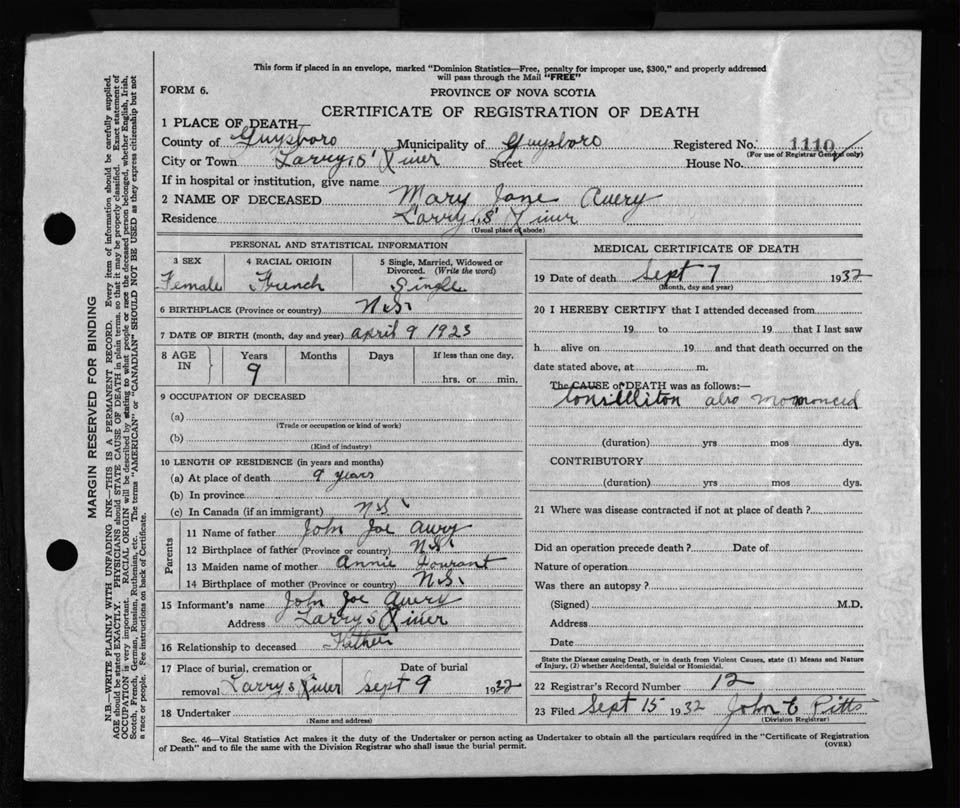 This form if placed in an envelope, marked "Dominion Statistics—Free, penalty for improper use, $300," and properly addressed
will pass through the Mail "FREE"
FORM 6.
PROVINCE OF NOVA SCOTIA
CERTIFICATE OF REGISTRATION OF DEATH
1 PLACE OF DEATH—
County of Guysboro Municipality of Guysboro Registered No. 1110
(For use of Registrar General only)
City or Town Larry,s' River Street House No.
If in hospital or institution, give name
2 NAME OF DECEASED Mary Jane Avery
Residence Larry,s' River
(Usual place of abode)
PERSONAL AND STATISTICAL INFORMATION
3 SEX 4 RACIAL ORIGIN 5 Single, Married, Widowed or Divorced. (Write the word)
Female French Single
6 BIRTHPLACE (Province or country) N.S.
7 DATE OF BIRTH (month, day and year) April 9 1923
8 AGE IN Years Months Days If less than one day,
9 hrs. or min.
9 OCCUPATION OF DECEASED
(a)
(Trade or occupation or kind of work)
(b)
(Kind of industry)
10 LENGTH OF RESIDENCE (in years and months)
(a) At place of death 9 years
(b) In province
(c) In Canada (if an immigrant) N.S.
Parents
11 Name of father John Joe Avery
12 Birthplace of father (Province or country) N.S.
13 Maiden name of mother Annie
14 Birthplace of mother (Province or country) N.S.
15 Informant's name John Joe Avery
Address Larry s River
16 Relationship to deceased Father
17 Place of burial, cremation or Date of burial
removal Larry s River Sept 9 1932
18 Undertaker
(Name and address)
MEDICAL CERTIFICATE OF DEATH
19 Date of death Sept 7 1932
(Month, day and year)
20 I HEREBY CERTIFY that I attended deceased from
19 to 19 that I last saw
h alive on 19 and that death occurred on the
date stated above, at m.
The CAUSE of DEATH was as follows:—
also
(duration) yrs mos dys.
CONTRIBUTORY
(duration) yrs mos dys.
21 Where was disease contracted if not at place of death?
Did an operation precede death? Date of
Nature of operation
Was there an autopsy?
(Signed) M.D.
Address
Date
State the Disease causing Death, or in death from Violent Causes, state (1) Means and Nature
of Injury, (2) whether Accidental, Suicidal or Homicidal.
22 Registrar's Record Number 12
23 Filed Sept 15 1932 John C Pitts
(Division Registrar)
Sec. 46—Vital Statistics Act makes it the duty of the Undertaker or person acting as Undertaker to obtain all the particulars required in the "Certificate of Registration
of Death" and to file the same with the Division Registrar who shall issue the burial permit. (OVER)
MARGIN RESERVED FOR BINDING
N.B.—WRITE PLAINLY WITH UNFADING INK—THIS IS A PERMANENT RECORD. Every item of information should be carefully supplied.
AGE should be stated EXACTLY. PHYSICIANS should STATE CAUSE OF DEATH in plain terms, so that it may be properly classified. Exact statement of
OCCUPATION is very important. RACIAL ORIGIN will be described by stating to what people or race the deceased person belonged, whether English, Irish,
Scotch, French, German, Russian, Ruthenian, etc. The terms "AMERICAN" or "CANADIAN" SHOULD NOT BE USED as they express citizenship but not
a race or people. See instructions on back of Certificate.